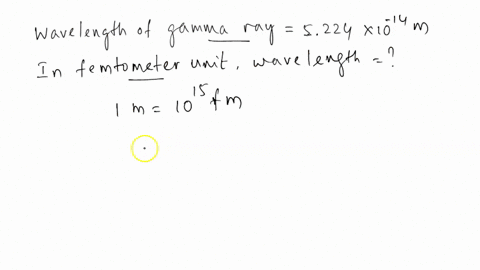 Wavelength of gamma ray = 5.224 × 10⁻¹⁴ m
In femtometer unit, wavelength = ?
1 m = 10¹⁵ fm